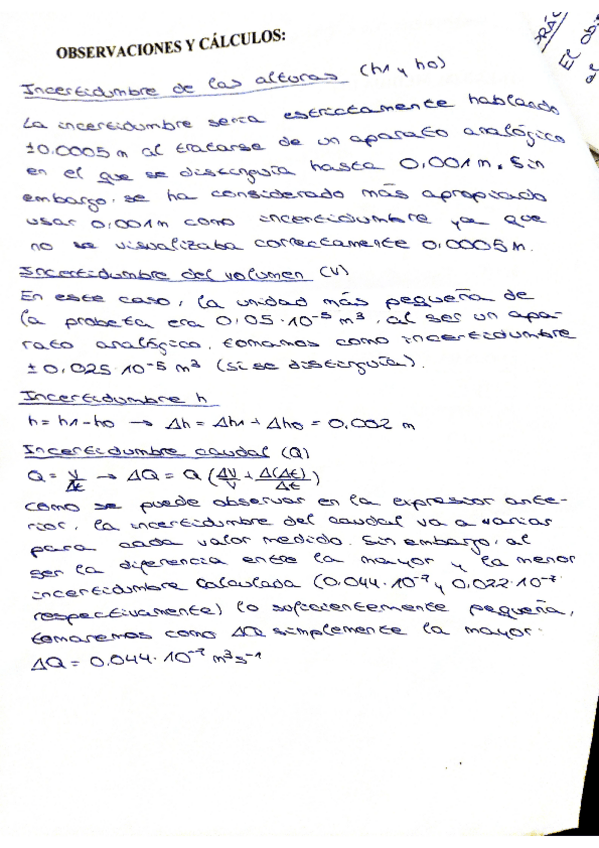 OBSERVACIONES Y CÁLCULOS:
Incertidumbre de las alturas (h1 y h0)
La incertidumbre sería estrictamente hablando
±0.0005 m al tratarse de un aparato analógico
en el que se distinguía hasta 0,001 m. Sin
embargo, se ha considerado más apropiado
usar 0,001m como incertidumbre ya que
no se visualizaba correctamente 0,0005m.
Incertidumbre del volumen (V)
En este caso, la unidad más pequeña de
la probeta era 0,05·10⁻⁵ m³, al ser un apa-
rato analógico, tomamos como incertidumbre
±0,025·10⁻⁵ m³ (si se distinguía).
Incertidumbre h
h = h1 - h0 → Δh = Δh1 + Δh0 = 0.002 m
Incertidumbre caudal (Q)
Q = V/Δt → ΔQ = Q (ΔV/V + Δ(Δt)/Δt)
Como se puede observar en la expresión ante-
rior, la incertidumbre del caudal va a varias
para cada valor medido. Sin embargo, al
ser la diferencia entre la mayor y la menor
incertidumbre calculada (0,044·10⁻⁷ y 0,022·10⁻⁷
respectivamente) lo suficientemente pequeña,
tomaremos como ΔQ simplemente la mayor.
ΔQ = 0.044·10⁻⁷ m³s⁻¹
PRÁC
El obj
al